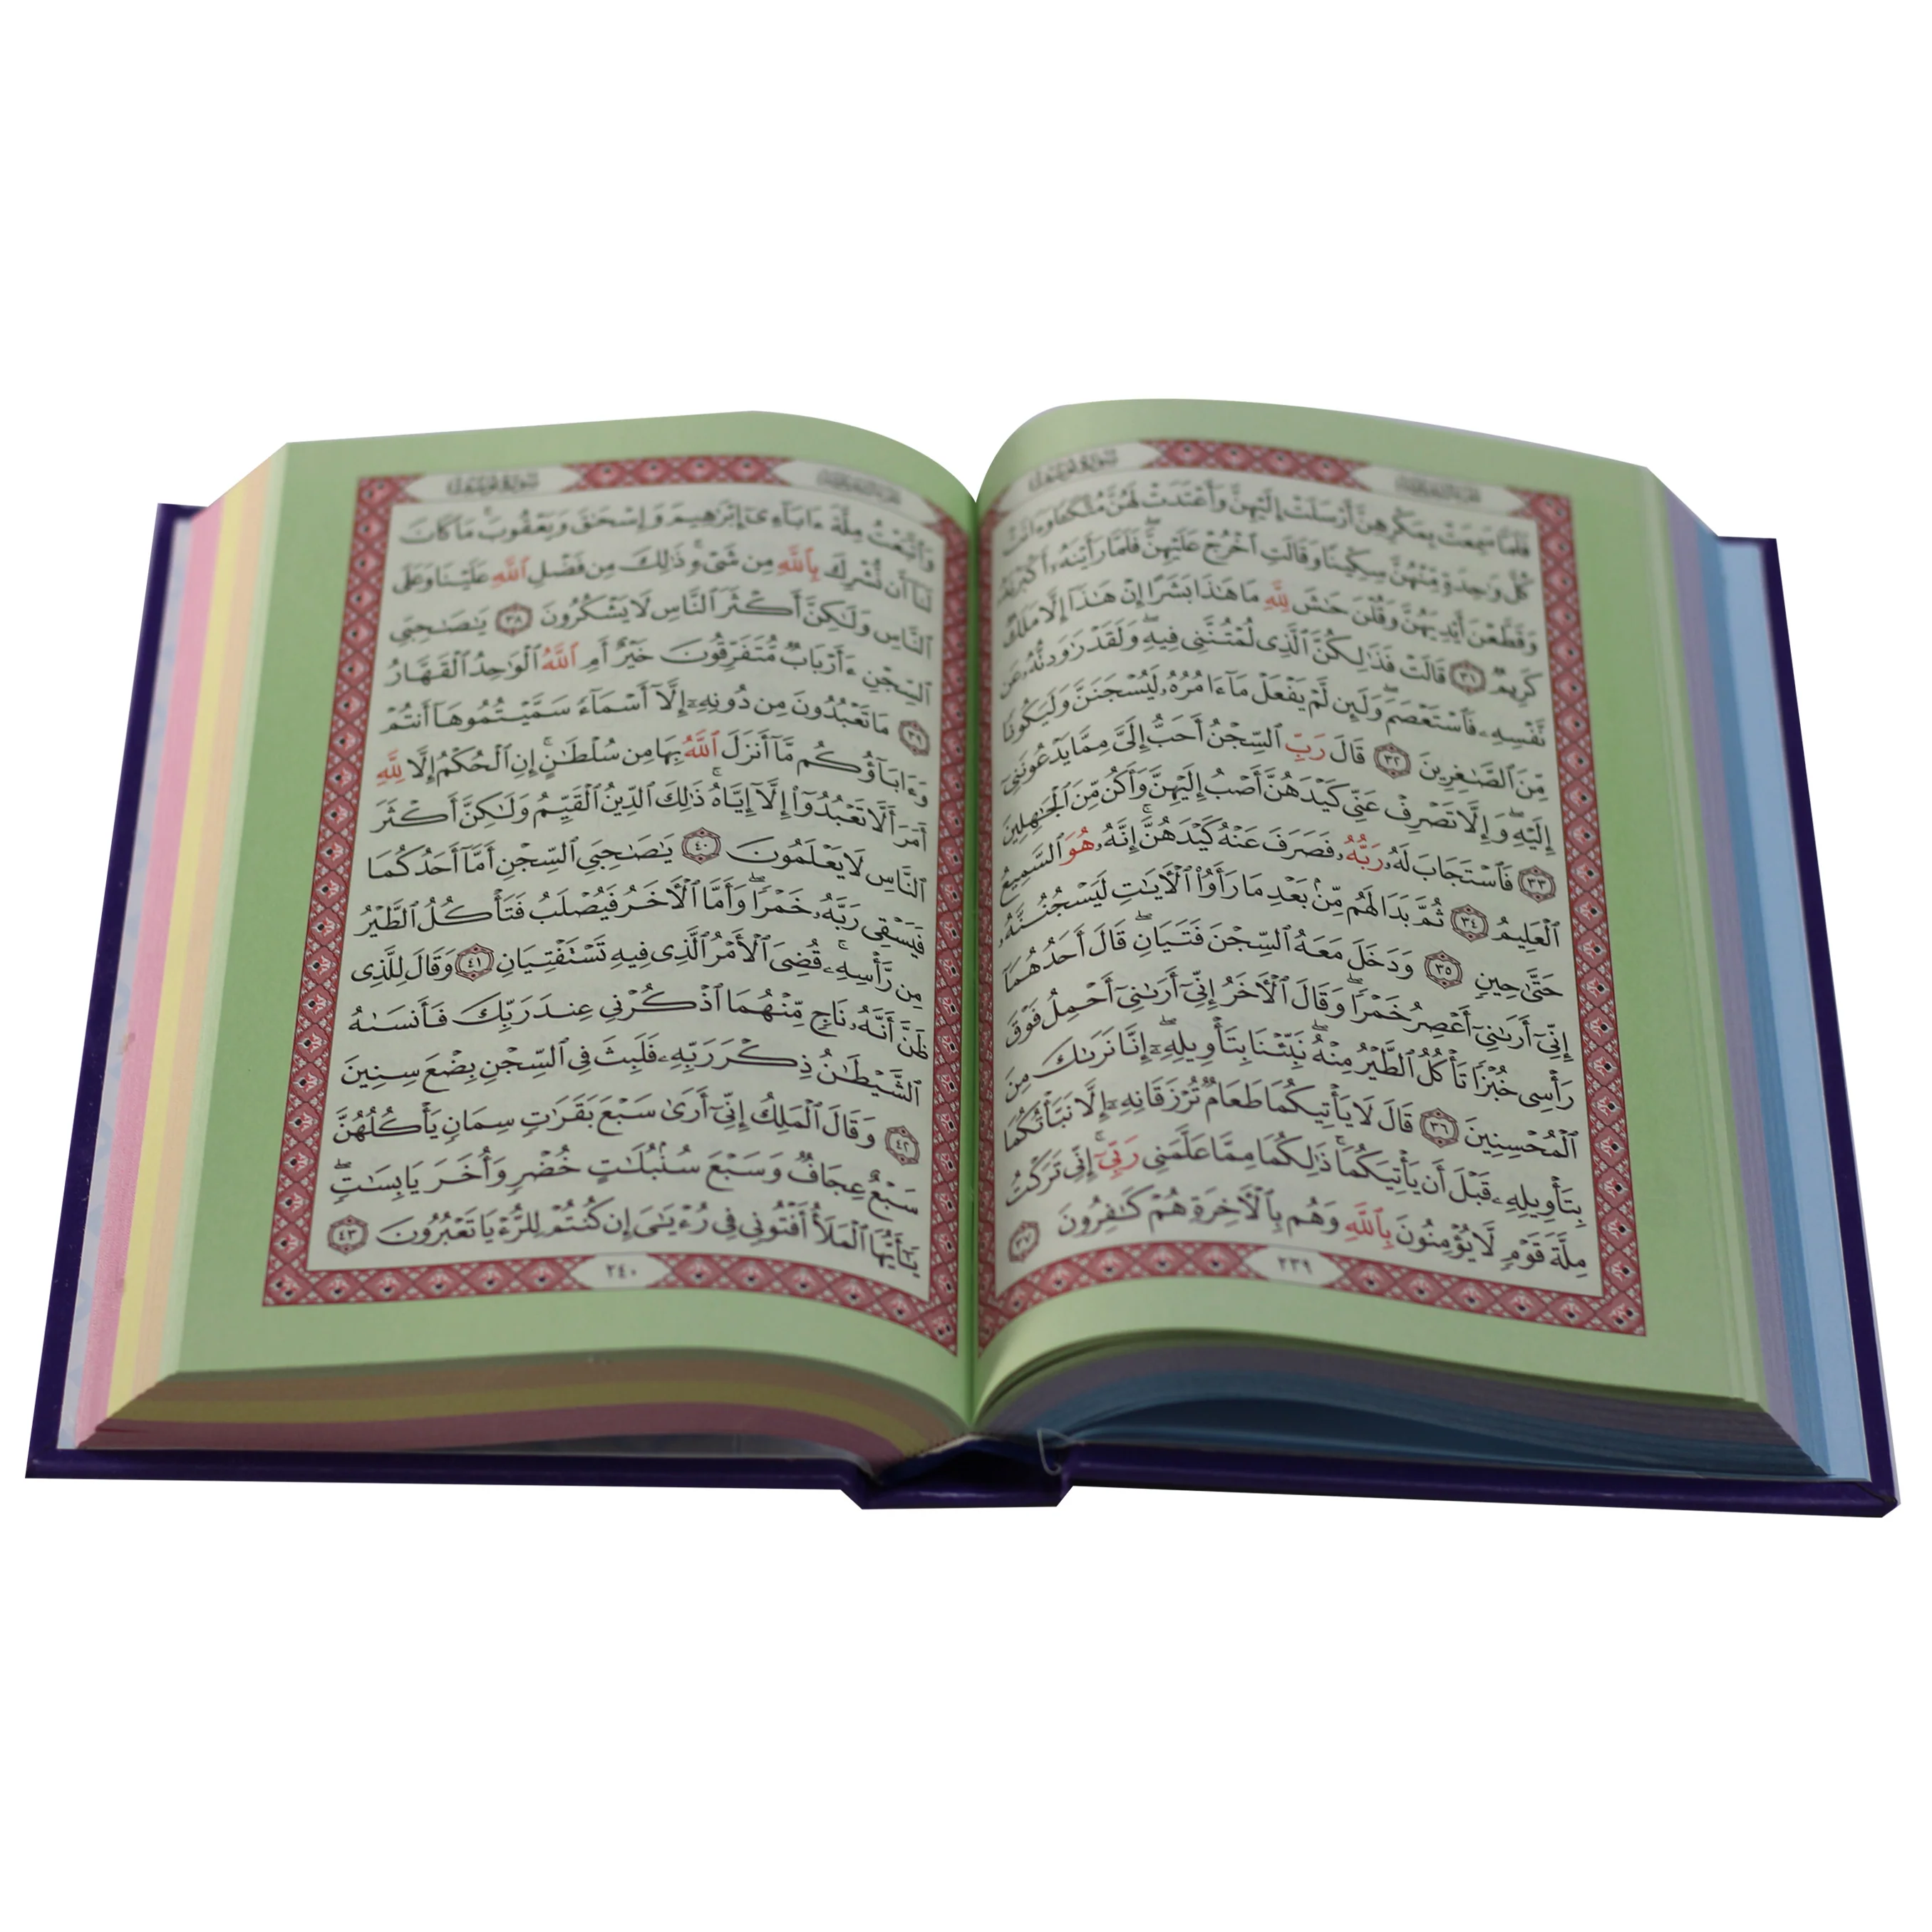 سورة يوسف
فَلَمَّا سَمِعَتْ بِمَكْرِهِنَّ أَرْسَلَتْ إِلَيْهِنَّ وَأَعْتَدَتْ لَهُنَّ مُتَّكَـًٔا وَءَاتَتْ
كُلَّ وَٰحِدَةٍ مِّنْهُنَّ سِكِّينًا وَقَالَتِ ٱخْرُجْ عَلَيْهِنَّ ۖ فَلَمَّا رَأَيْنَهُۥٓ أَكْبَرْنَهُۥ
وَقَطَّعْنَ أَيْدِيَهُنَّ وَقُلْنَ حَٰشَ لِلَّهِ مَا هَٰذَا بَشَرًا إِنْ هَٰذَآ إِلَّا مَلَكٌ
كَرِيمٌ ٣١ قَالَتْ فَذَٰلِكُنَّ ٱلَّذِى لُمْتُنَّنِى فِيهِ ۖ وَلَقَدْ رَٰوَدتُّهُۥ عَن
نَّفْسِهِۦ فَٱسْتَعْصَمَ ۖ وَلَئِن لَّمْ يَفْعَلْ مَآ ءَامُرُهُۥ لَيُسْجَنَنَّ وَلَيَكُونًا
مِّنَ ٱلصَّٰغِرِينَ ٣٢ قَالَ رَبِّ ٱلسِّجْنُ أَحَبُّ إِلَىَّ مِمَّا يَدْعُونَنِىٓ
إِلَيْهِ ۖ وَإِلَّا تَصْرِفْ عَنِّى كَيْدَهُنَّ أَصْبُ إِلَيْهِنَّ وَأَكُن مِّنَ ٱلْجَٰهِلِينَ
٣٣ فَٱسْتَجَابَ لَهُۥ رَبُّهُۥ فَصَرَفَ عَنْهُ كَيْدَهُنَّ ۚ إِنَّهُۥ هُوَ ٱلسَّمِيعُ
ٱلْعَلِيمُ ٣٤ ثُمَّ بَدَا لَهُم مِّنۢ بَعْدِ مَا رَأَوُا۟ ٱلْـَٔايَٰتِ لَيَسْجُنُنَّهُۥ
حَتَّىٰ حِينٍ ٣٥ وَدَخَلَ مَعَهُ ٱلسِّجْنَ فَتَيَانِ ۖ قَالَ أَحَدُهُمَآ
إِنِّىٓ أَرَىٰنِىٓ أَعْصِرُ خَمْرًا ۖ وَقَالَ ٱلْـَٔاخَرُ إِنِّىٓ أَرَىٰنِىٓ أَحْمِلُ فَوْقَ
رَأْسِى خُبْزًا تَأْكُلُ ٱلطَّيْرُ مِنْهُ ۖ نَبِّئْنَا بِتَأْوِيلِهِۦٓ ۖ إِنَّا نَرَىٰكَ مِنَ
ٱلْمُحْسِنِينَ ٣٦ قَالَ لَا يَأْتِيكُمَا طَعَامٌ تُرْزَقَانِهِۦٓ إِلَّا نَبَّأْتُكُمَا
بِتَأْوِيلِهِۦ قَبْلَ أَن يَأْتِيَكُمَا ۚ ذَٰلِكُمَا مِمَّا عَلَّمَنِى رَبِّىٓ ۚ إِنِّى تَرَكْتُ
مِلَّةَ قَوْمٍ لَّا يُؤْمِنُونَ بِٱللَّهِ وَهُم بِٱلْـَٔاخِرَةِ هُمْ كَٰفِرُونَ ٣٧
٢٣٩
سورة يوسف
وَٱتَّبَعْتُ مِلَّةَ ءَابَآءِىٓ إِبْرَٰهِيمَ وَإِسْحَٰقَ وَيَعْقُوبَ ۚ مَا كَانَ
لَنَآ أَن نُّشْرِكَ بِٱللَّهِ مِن شَىْءٍ ۚ ذَٰلِكَ مِن فَضْلِ ٱللَّهِ عَلَيْنَا وَعَلَى
ٱلنَّاسِ وَلَٰكِنَّ أَكْثَرَ ٱلنَّاسِ لَا يَشْكُرُونَ ٣٨ يَٰصَٰحِبَىِ
ٱلسِّجْنِ ءَأَرْبَابٌ مُّتَفَرِّقُونَ خَيْرٌ أَمِ ٱللَّهُ ٱلْوَٰحِدُ ٱلْقَهَّارُ
٣٩ مَا تَعْبُدُونَ مِن دُونِهِۦٓ إِلَّآ أَسْمَآءً سَمَّيْتُمُوهَآ أَنتُمْ
وَءَابَآؤُكُم مَّآ أَنزَلَ ٱللَّهُ بِهَا مِن سُلْطَٰنٍ ۚ إِنِ ٱلْحُكْمُ إِلَّا لِلَّهِ
أَمَرَ أَلَّا تَعْبُدُوٓا۟ إِلَّآ إِيَّاهُ ۚ ذَٰلِكَ ٱلدِّينُ ٱلْقَيِّمُ وَلَٰكِنَّ أَكْثَرَ
ٱلنَّاسِ لَا يَعْلَمُونَ ٤٠ يَٰصَٰحِبَىِ ٱلسِّجْنِ أَمَّآ أَحَدُكُمَا
فَيَسْقِى رَبَّهُۥ خَمْرًا ۖ وَأَمَّا ٱلْـَٔاخَرُ فَيُصْلَبُ فَتَأْكُلُ ٱلطَّيْرُ
مِن رَّأْسِهِۦ ۚ قُضِىَ ٱلْأَمْرُ ٱلَّذِى فِيهِ تَسْتَفْتِيَانِ ٤١ وَقَالَ لِلَّذِى
ظَنَّ أَنَّهُۥ نَاجٍ مِّنْهُمَا ٱذْكُرْنِى عِندَ رَبِّكَ فَأَنسَىٰهُ
ٱلشَّيْطَٰنُ ذِكْرَ رَبِّهِۦ فَلَبِثَ فِى ٱلسِّجْنِ بِضْعَ سِنِينَ
٤٢ وَقَالَ ٱلْمَلِكُ إِنِّىٓ أَرَىٰ سَبْعَ بَقَرَٰتٍ سِمَانٍ يَأْكُلُهُنَّ
سَبْعٌ عِجَافٌ وَسَبْعَ سُنۢبُلَٰتٍ خُضْرٍ وَأُخَرَ يَابِسَٰتٍ ۖ
يَٰٓأَيُّهَا ٱلْمَلَأُ أَفْتُونِى فِى رُءْيَٰىَ إِن كُنتُمْ لِلرُّءْيَا تَعْبُرُونَ ٤٣
٢٤٠